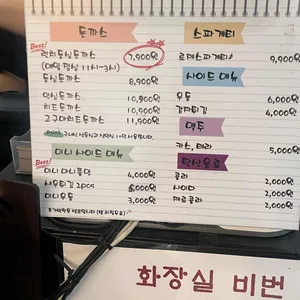 돈까스
Best!
런치등심돈까스 7,900원
(매일 점심 11시~3시)
등심돈까스 8,900원
안심돈까스 10,900원
치즈돈까스 10,900원
고구마치즈돈까스 11,900원
미니 사이드 메뉴
Best!
미니 미니쫄면 4,000원
새우튀김 2pcs
미니우동 3,000원
스파게티
로제스파게티 9,900원
사이드 메뉴
우동 6,000원
감자튀김 4,000원
맥주
카스, 테라 5,000원
탄산음료
콜라 2,000원
사이다 2,000원
제로콜라 2,000원
화장실 비번